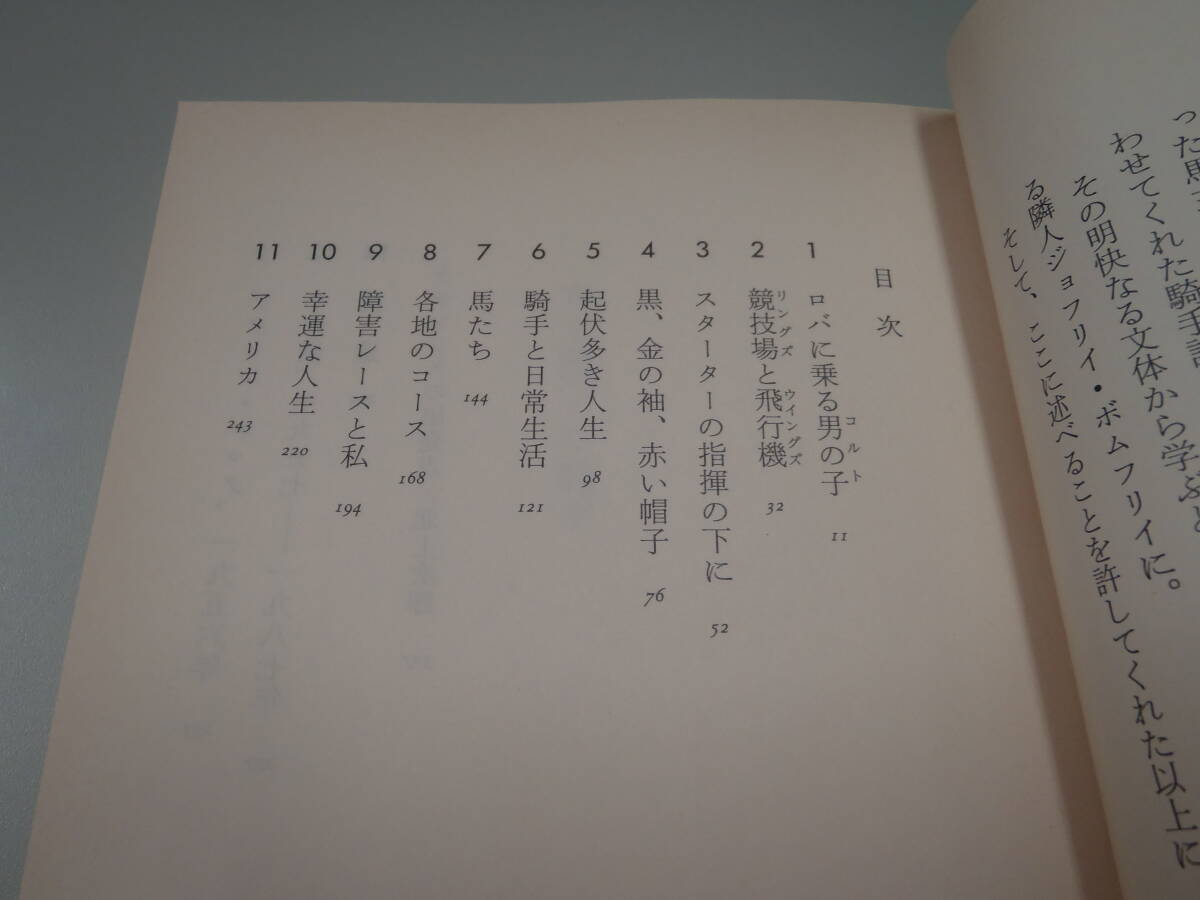 った馬
わせてくれた騎手
その明快なる文体から学ぶ
る隣人ジョフリイ・ボムフリイに。
そして、ここに述べることを許してくれた以上に
目次
1 ロバに乗る男の子 コルト 11
2 競技場と飛行機 リングズ ウイングズ 32
3 スターターの指揮の下に 52
4 黒、金の袖、赤い帽子 76
5 起伏多き人生 98
6 騎手と日常生活 121
7 馬たち 144
8 各地のコース 168
9 障害レースと私 194
10 幸運な人生 220
11 アメリカ 243